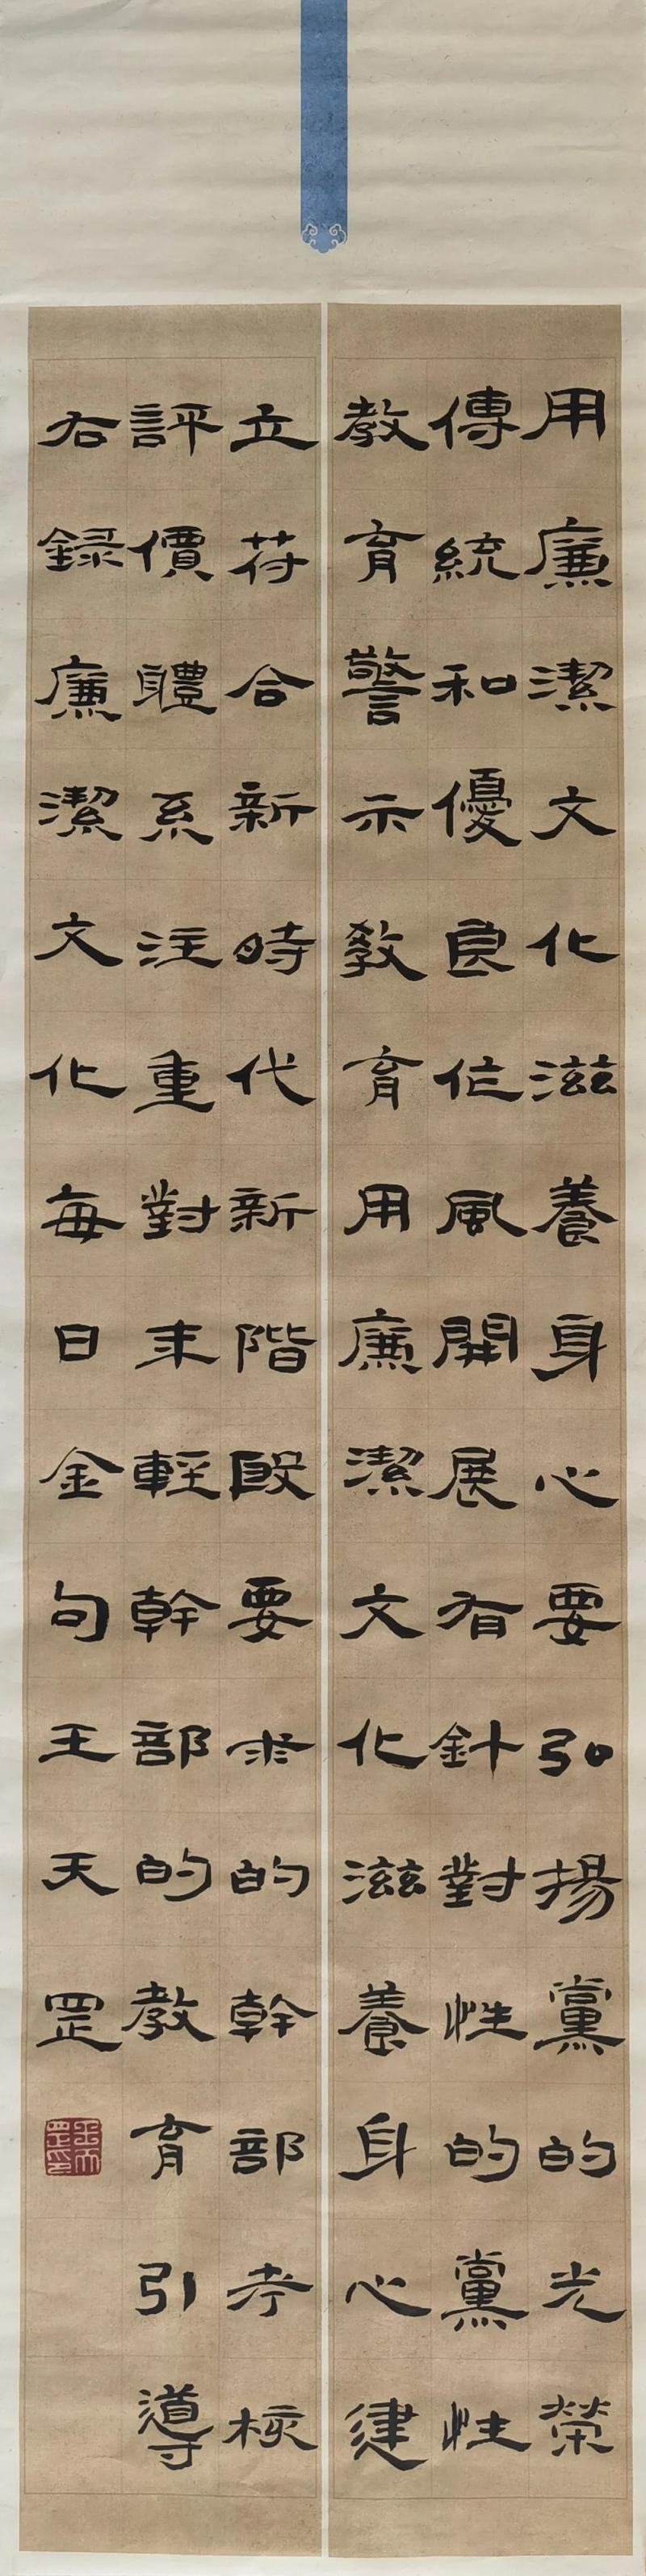 用廉潔文化滋養身心要弘揚黨的光榮
傳統和優良作風開展有針對性的黨性
教育警示教育用廉潔文化滋養身心建
立苻合新時代新階段要求的幹部考核
評價體系注重對年輕幹部的教育引導
右録廉潔文化每日金句王天罡